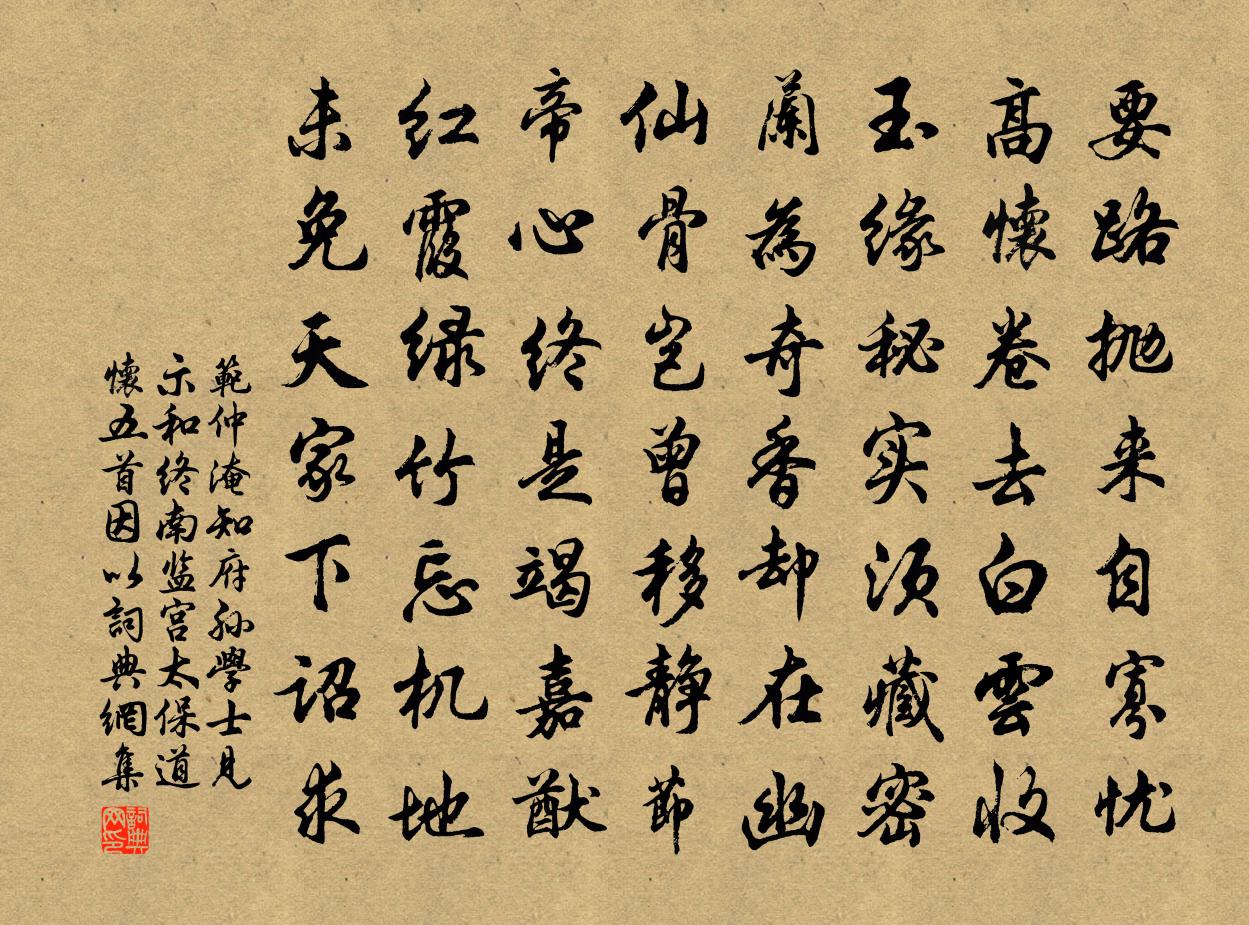 要路抛来自寡忧
高懷卷去白雲收
玉缘秘实须藏密
蘭為奇香却在幽
仙骨岂曾移静節
帝心终是竭嘉猷
红霞绿竹忘机地
未免天家下詔求
範仲淹知府孙學士見
示和终南监宫太保道
懷五首因以詞典網集
詞典网印